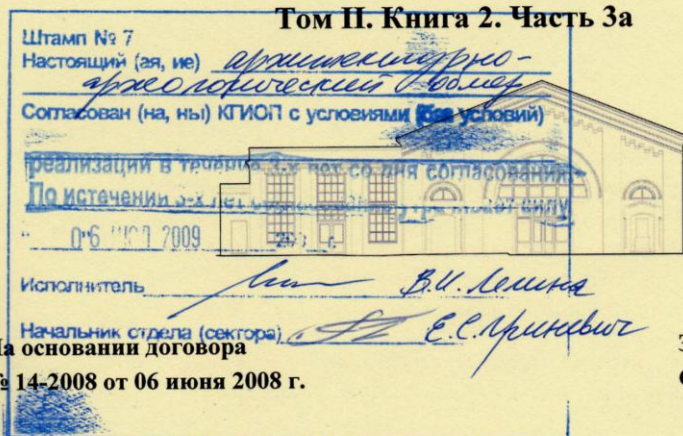 Том II. Книга 2. Часть 3а
Штамп № 7
Настоящий (ая, ие) архитектурно-
археологический обмер
Согласован (на, ны) КГИОП с условиями (без условий)
реализации в течение 3-х лет со дня согласования
По истечении 3-х лет силу
06 ИЮЛ 2009
Исполнитель В.И. Лелина
Начальник отдела (сектора) Е.С. Гриневич
На основании договора
№ 14-2008 от 06 июня 2008 г.